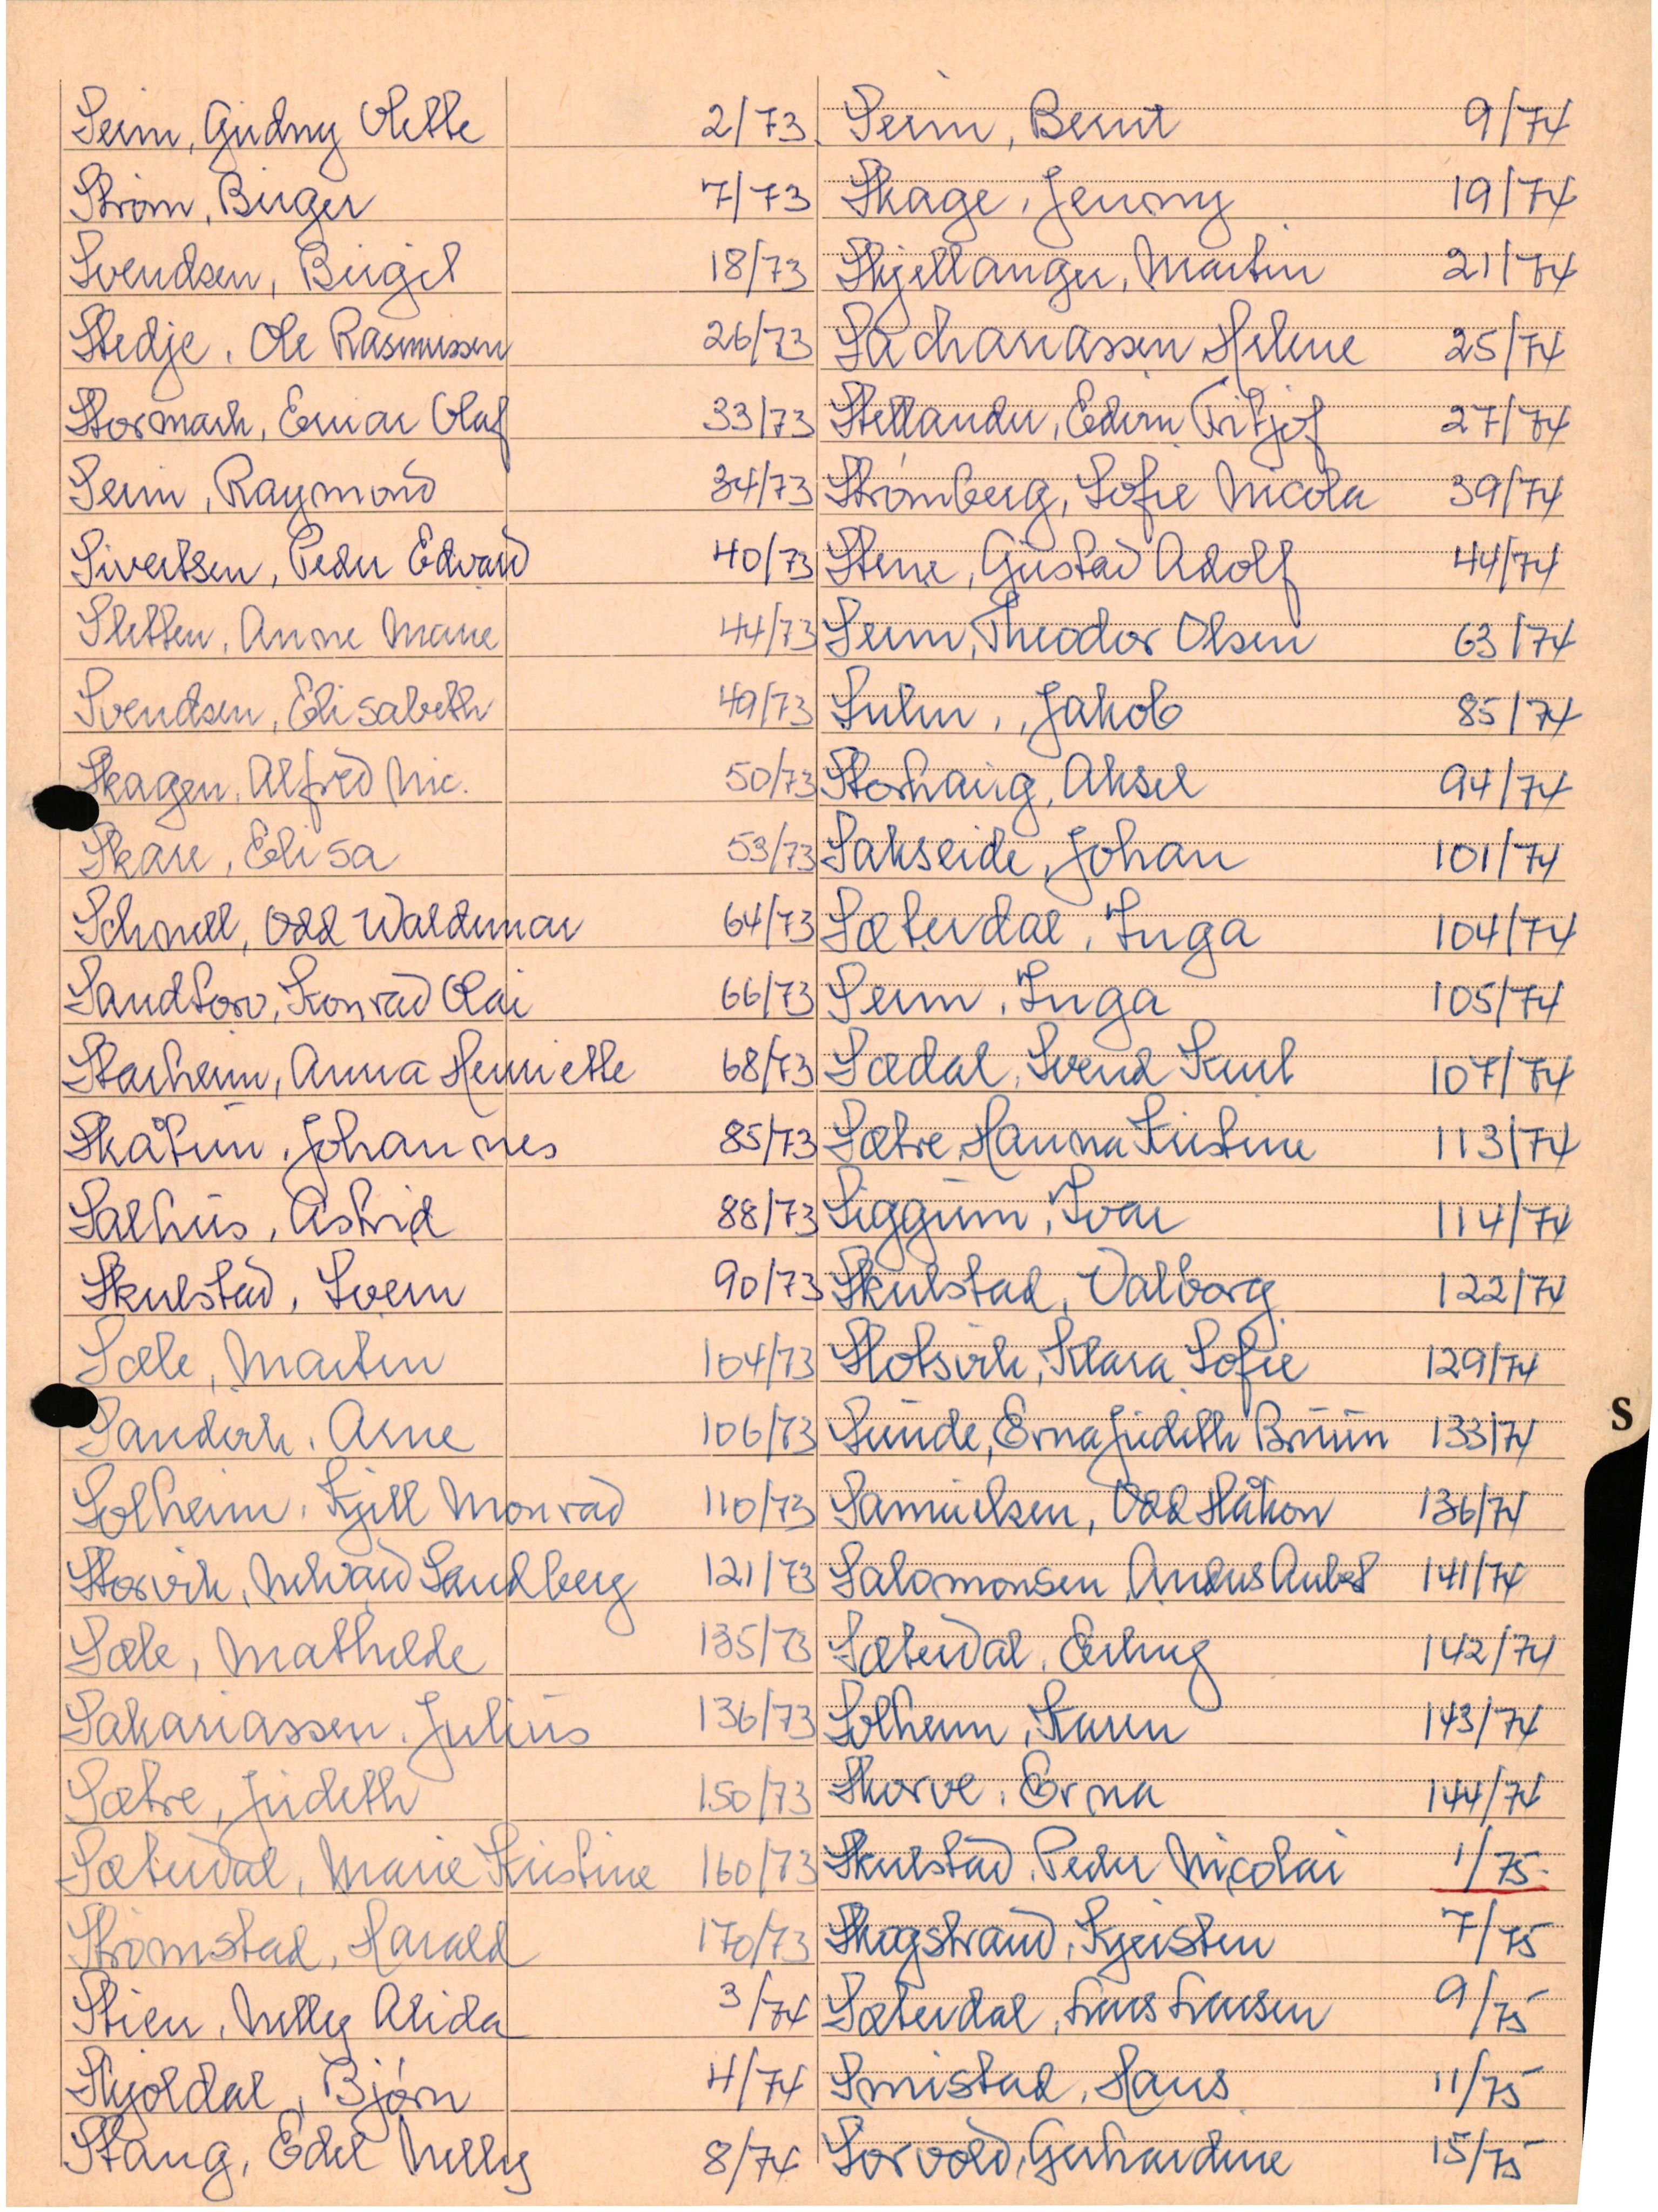 Seim, Gudny Olette 2/73
Strøm, Birger 7/73
Svendsen, Birgit 18/73
Stedje, Ole Rasmussen 26/73
Stormark, Einar Olaf 33/73
Seim, Raymond 34/73
Sivertsen, Peder Edvard 40/73
Sletten, Anne Marie 44/73
Svendsen, Elisabeth 49/73
Skagen, Alfred Nic. 50/73
Skare, Elisa 53/73
Schnell, Odd Waldemar 64/73
Sandtorv, Konrad Olai 66/73
Starheim, Anna Henriette 68/73
Skåtun, Johannes 85/73
Salhus, Astrid 88/73
Skulstad, Svein 90/73
Sæle, Martin 104/73
Sandvik, Arne 106/73
Solheim, Kjell Monrad 110/73
Storvik, Sandberg 121/73
Sæle, Mathilde 135/73
Sakariassen, Julius 136/73
Sætre, Judith 150/73
Sæterdal, Marie Kristine 160/73
Strømstad, Harald 170/73
Stien, Nelly Alida 3/74
Skjoldal, Bjørn 4/74
Stang, Edel Nelly 8/74
Seim, Bernt 9/74
Skage, Jenny 19/74
Skjellanger, Martin 21/74
Sachariassen Helene 25/74
Stellander, Edvin Fritjof 27/74
Strømberg, Sofie Nicola 39/74
Stene, Gustav Adolf 44/74
Seim, Theodor Olsen 63/74
Suhm, Jakob 85/74
Storhaug, Aksel 94/74
Sakseide, Johan 101/74
Sæterdal, Inga 104/74
Seim, Inga 105/74
Sædal, Svend Kurt 107/74
Sætre, Hanna Kristine 113/74
Siggum, Ivar 114/74
Skulstad, Valborg 122/74
Slotsvik, Klara Sofie 129/74
Sunde, Erna Judith Bruun 133/74
Samuelsen, Odd Håkon 136/74
Salomonsen, Anders 141/74
Sæterdal, Erling 142/74
Solheim, Karen 143/74
Skorve, Erna 144/74
Skulstad, Peder Nicolai 1/75
Skogstrand, Kjersten 7/75
Sæterdal, Lars Larsen 9/75
Smistad, Hans 11/75
Sørvold, Gerhardine 15/75
S